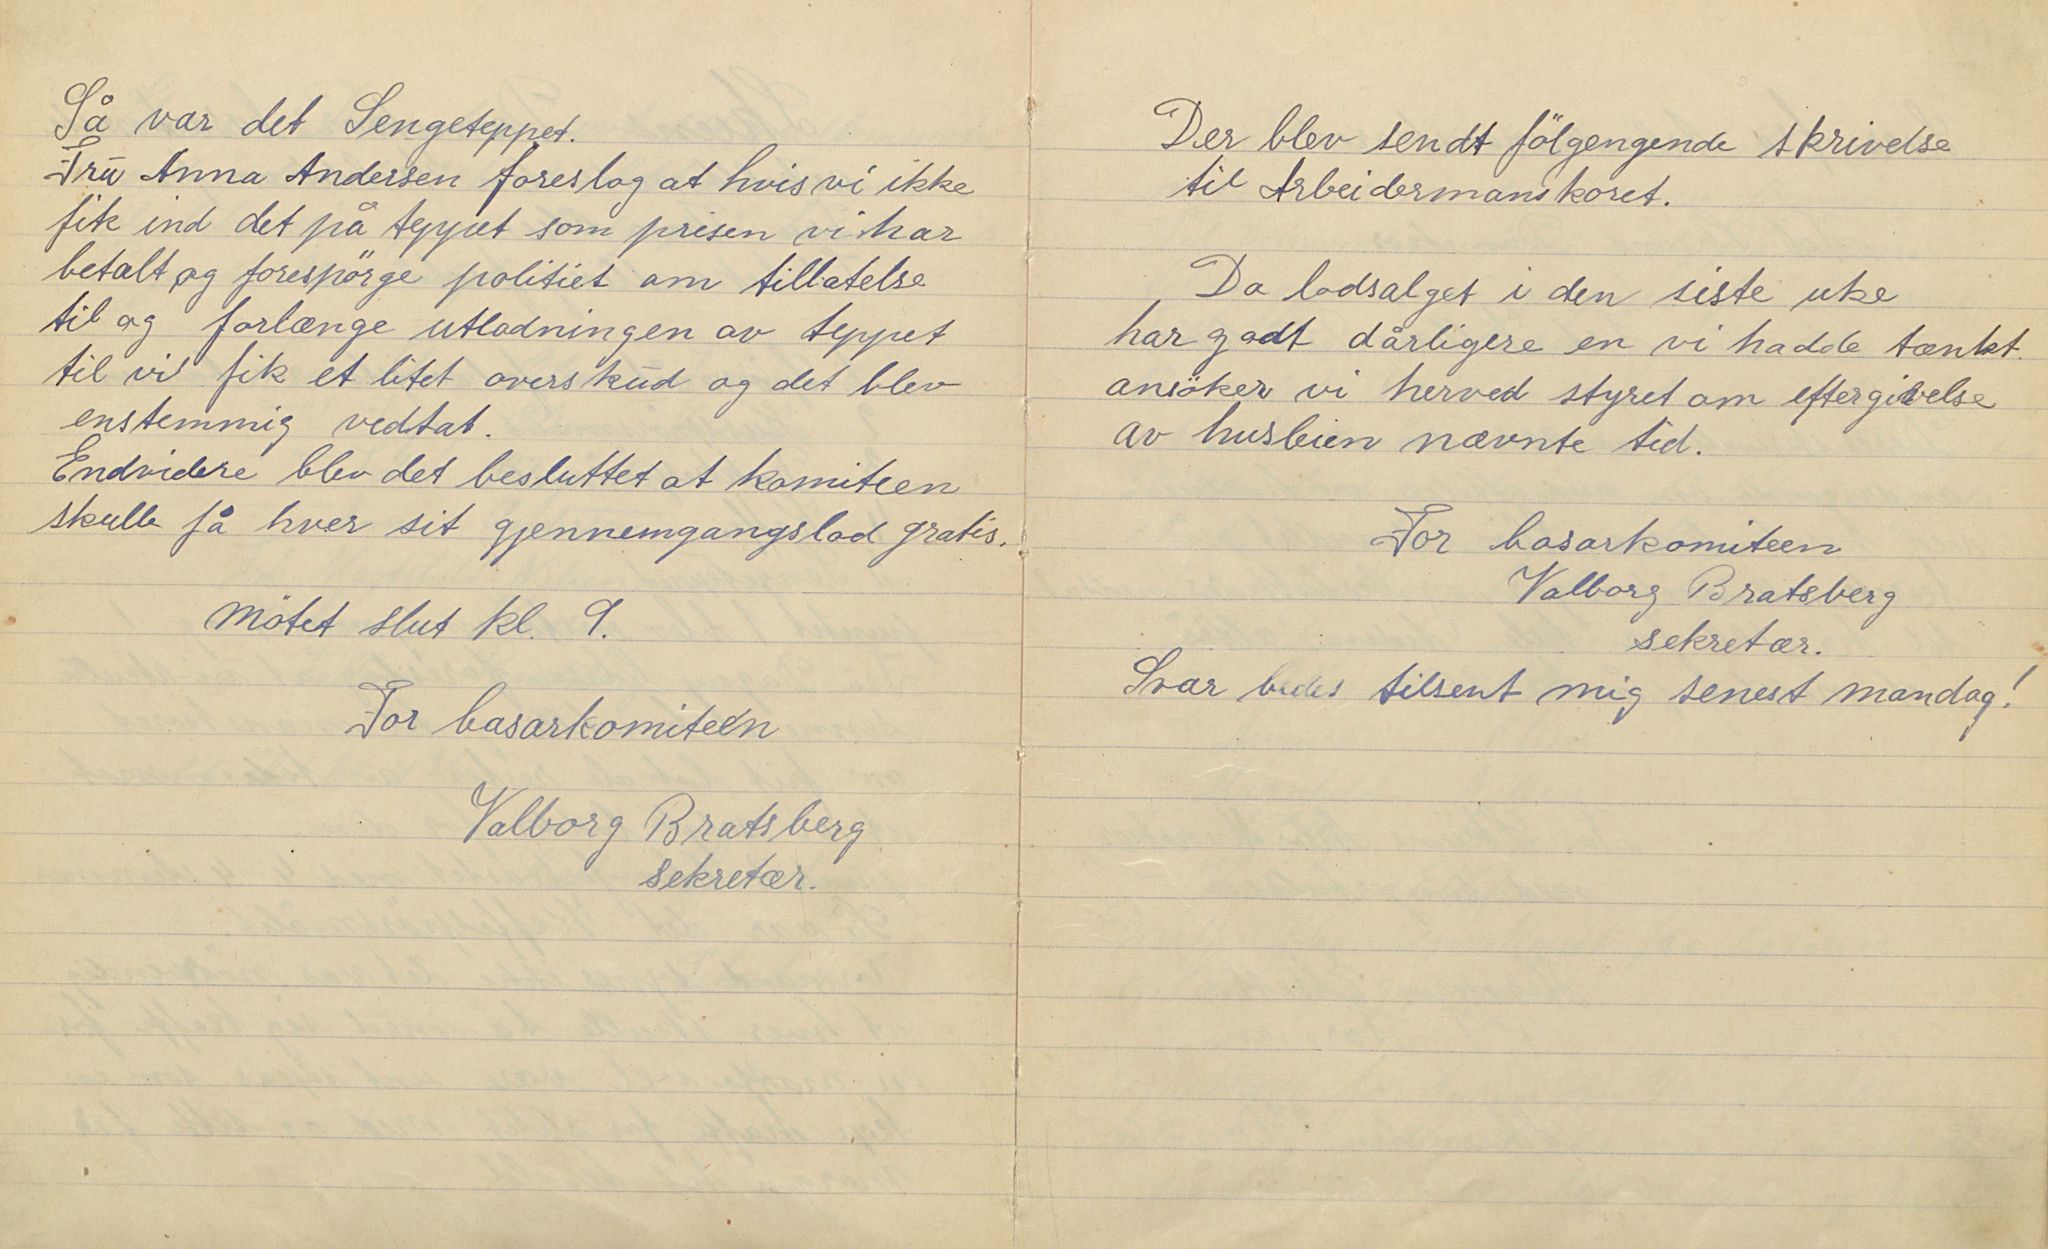 Så var det Sengeteppet.
Fru Anna Andersen foreslog at hvis vi ikke
fik ind det på teppet som prisen vi har
betalt og forespörge politiet om tillatelse
til og forlænge utlodningen av teppet
til vi fik et litet overskud og det blev
enstemmig vedtat.
Endvidere blev det besluttet at komiteen
skulle få hver sit gjennemgangslod gratis.
Mötet slut kl. 9.
For basarkomiteen
Valborg Bratsberg
sekretær.
Der blev sendt fölgengende skrivelse
til Arbeidermanskoret.
Da lodsalget i den siste uke
har godt dårligere en vi hadde tænkt.
ansöker vi herved styret om eftergivelse
av husleien nævnte tid.
For basarkomiteen
Valborg Bratsberg
sekretær.
Svar bedes tilsent mig senest mandag!